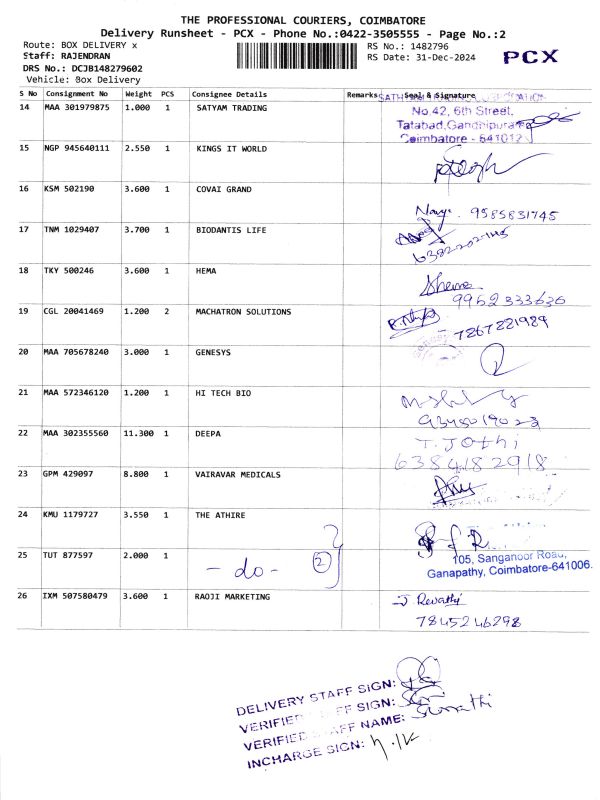 THE PROFESSIONAL COURIERS, COIMBATORE
Delivery Runsheet - PCX - Phone No.:0422-3505555 - Page No.:2
Route: BOX DELIVERY x
Staff: RAJENDRAN
DRS No.: DCJB148279602
Vehicle: Box Delivery
RS No.: 1482796
RS Date: 31-Dec-2024
PCX
S No Consignment No Weight PCS Consignee Details Remarks Seal & Signature
14 MAA 301979875 1.000 1 SATYAM TRADING
No.42, 6th Street,
Tatabad, Gandhipuram
Coimbatore - 641012
15 NGP 945640111 2.550 1 KINGS IT WORLD
16 KSM 502190 3.600 1 COVAI GRAND
9585831745
17 TNM 1029407 3.700 1 BIODANTIS LIFE
18 TKY 500246 3.600 1 HEMA
Hema
9952333636
19 CGL 20041469 1.200 2 MACHATRON SOLUTIONS
7267221989
20 MAA 705678240 3.000 1 GENESYS
21 MAA 572346120 1.200 1 HI TECH BIO
22 MAA 302355560 11.300 1 DEEPA
T. Jothi
6384182918
23 GPM 429097 8.800 1 VAIRAVAR MEDICALS
24 KMU 1179727 3.550 1 THE ATHIRE
25 TUT 877597 2.000 1
- do - 2
105, Sanganoor Road,
Ganapathy, Coimbatore-641006.
26 IXM 507580479 3.600 1 RAOJI MARKETING
J Revathi
7845246298
DELIVERY STAFF SIGN:
VERIFIED STAFF SIGN:
VERIFIED STAFF NAME: Sumathi
INCHARGE SIGN: